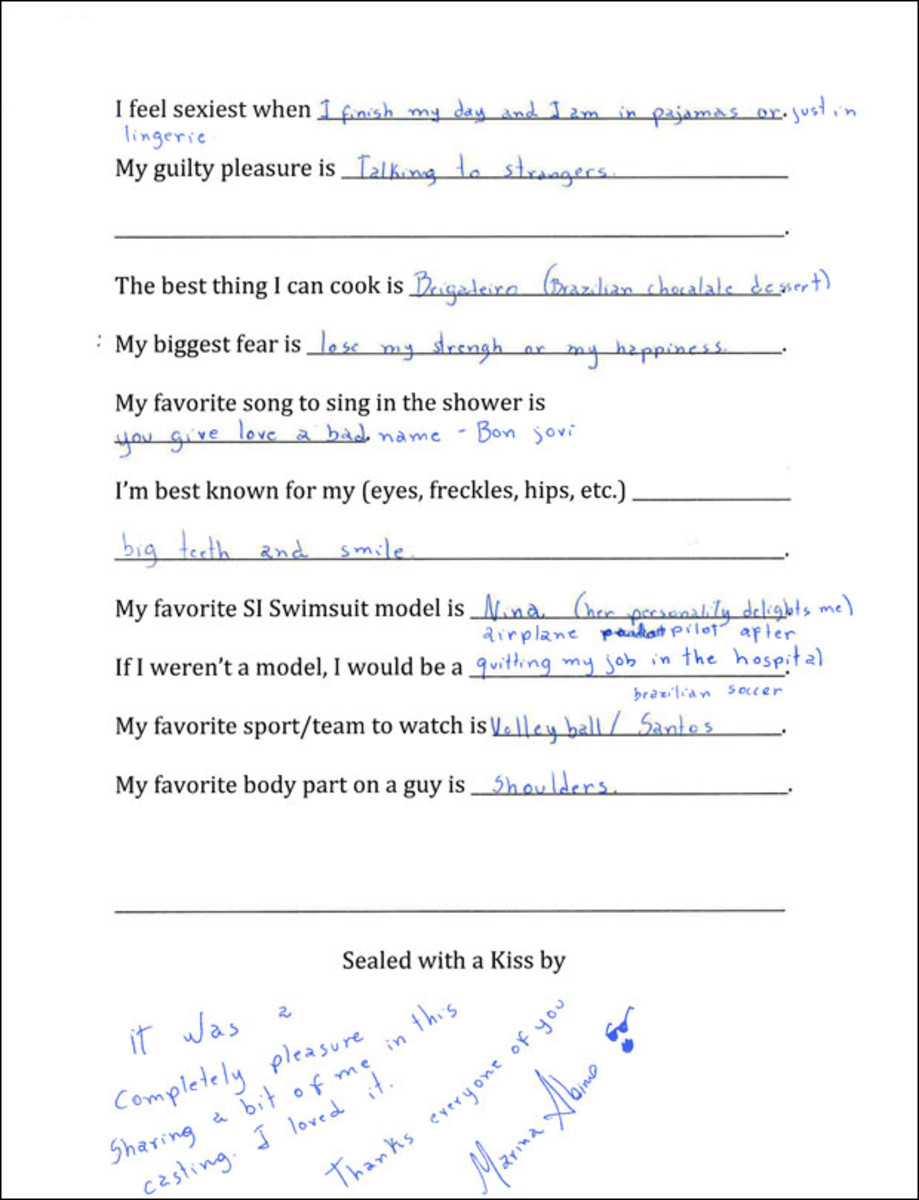 I feel sexiest when I finish my day and I am in pajamas or. just in
lingerie
My guilty pleasure is Talking to strangers.
.
The best thing I can cook is Brigadeiro (Brazilian chocalate dessert)
: My biggest fear is lose my strengh or my happiness.
My favorite song to sing in the shower is
you give love a bad. name - Bon jovi
I'm best known for my (eyes, freckles, hips, etc.)
big teeth and smile.
My favorite SI Swimsuit model is Nina (her personality delights me)
airplane pilot after
If I weren't a model, I would be a quitting my job in the hospital.
brazilian soccer
My favorite sport/team to watch is Volleyball / Santos.
My favorite body part on a guy is shoulders.
Sealed with a Kiss by
it was a
completely pleasure
sharing a bit of me in this
casting. I loved it.
Thanks everyone of you
Marina